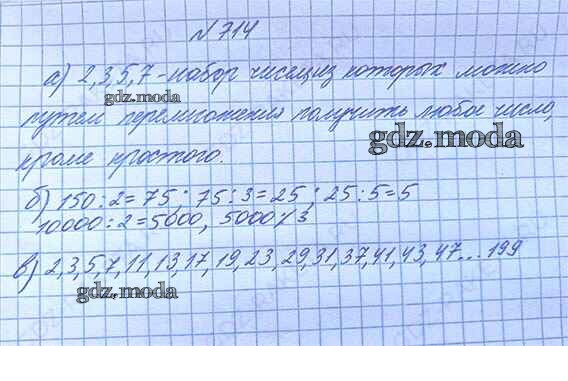 №714
а) 2,3,5,7 - набор чисел, из которых можно
gdz.moda
путем перемножения получить любое число,
gdz.moda
кроме простого.
б) 150:2=75; 75:3=25; 25:5=5
10000:2=5000, 5000⁒3
в) 2,3,5,7,11,13,17,19,23,29,31,37,41,43,47...199
gdz.moda